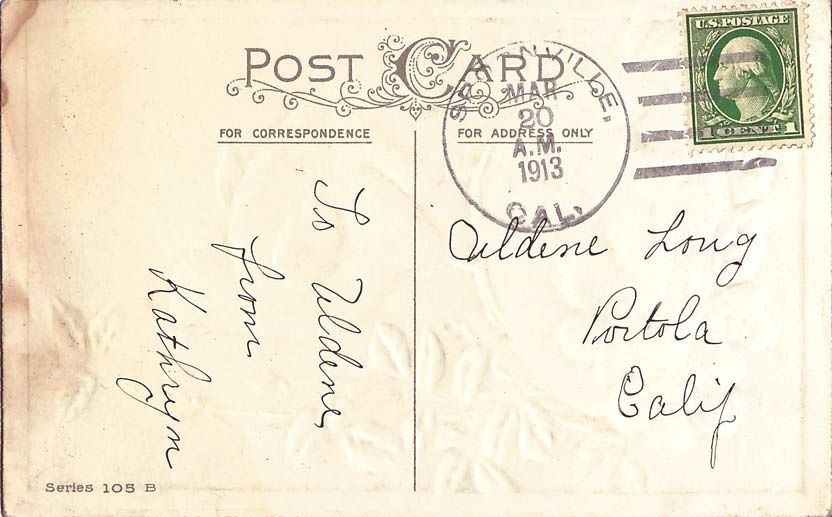 POST CARD
U.S. POSTAGE
1 CENT 1
MAR
20
A.M.
1913
CAL.
FOR CORRESPONDENCE
FOR ADDRESS ONLY
To Aldene,
from
Kathryn
Aldene Long
Portola
Calif
Series 105 B